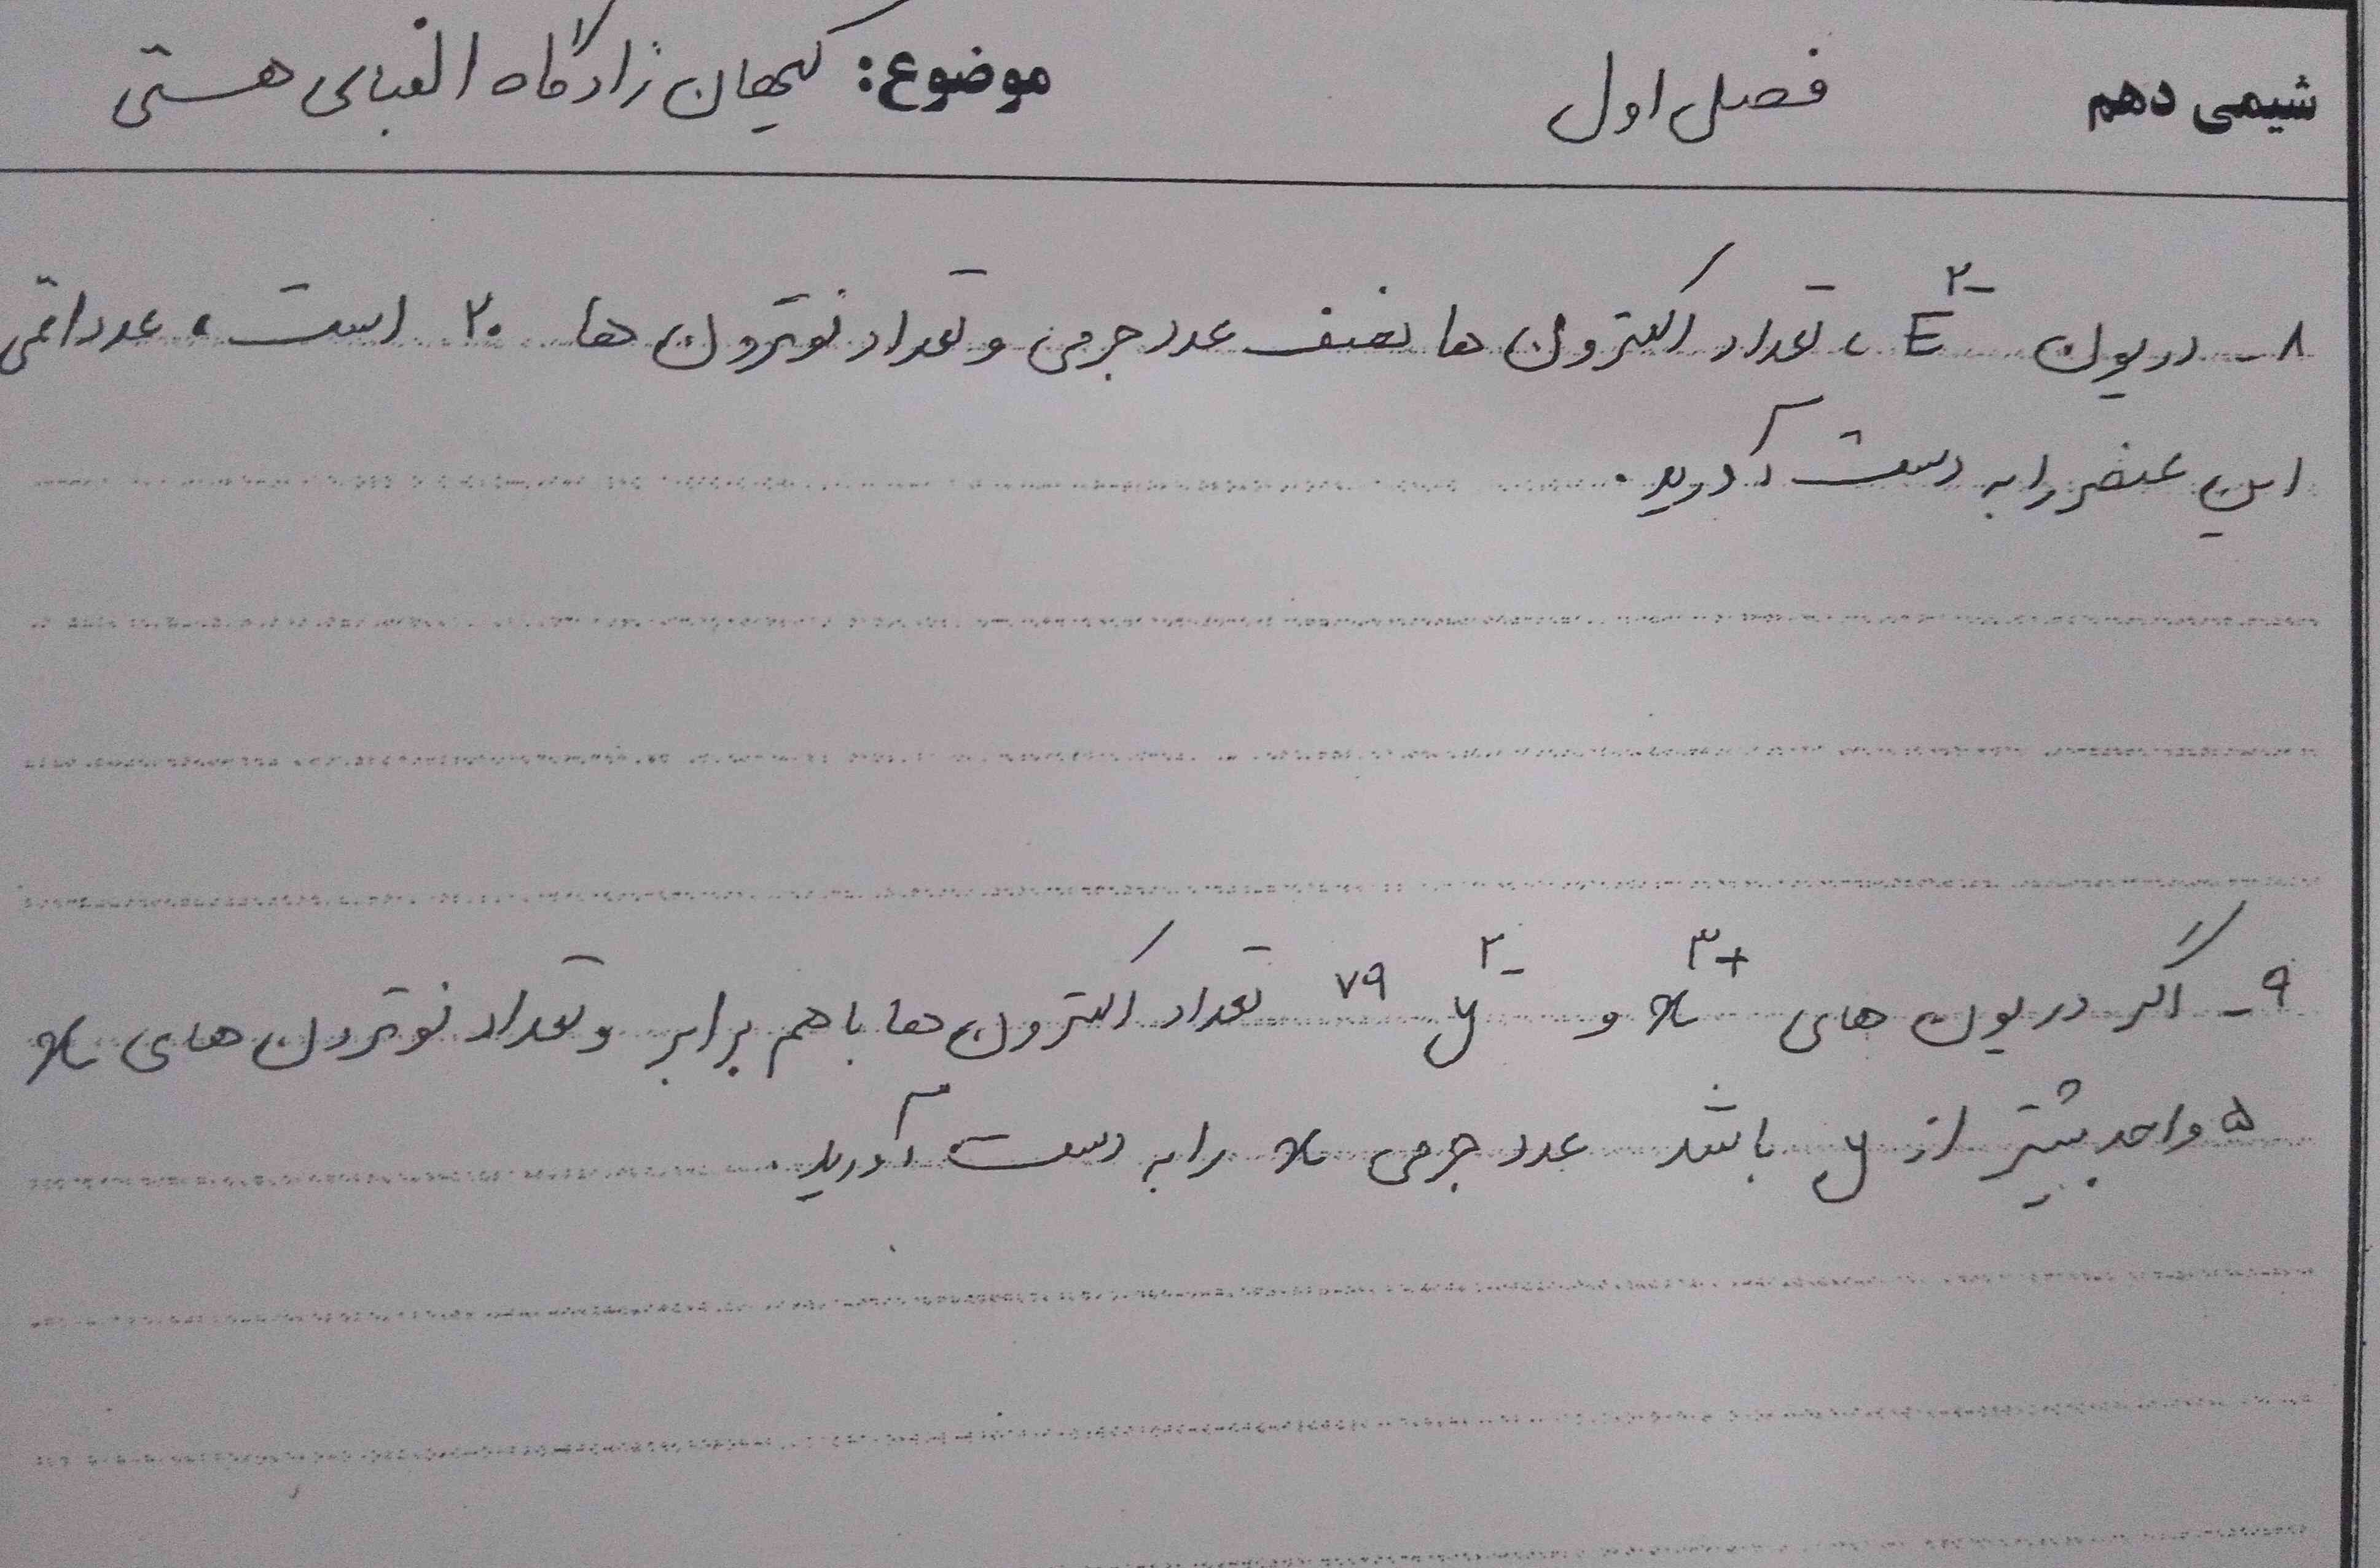 شیمی دهم فصل اول موضوع: کیهان زادگاه الفبای هستی
۸ - در یون E²⁻ ، تعداد الکترون ها نصف عدد جرمی و تعداد نوترون ها ۲۰ است ، عدد اتمی
این عنصر را به دست آورید .
۹ - اگر در یون های x³⁺ و y²⁻ ⁷⁹ تعداد الکترون ها با هم برابر و تعداد نوترون های x
۵ واحد بیشتر از y باشد عدد جرمی x را به دست آورید .